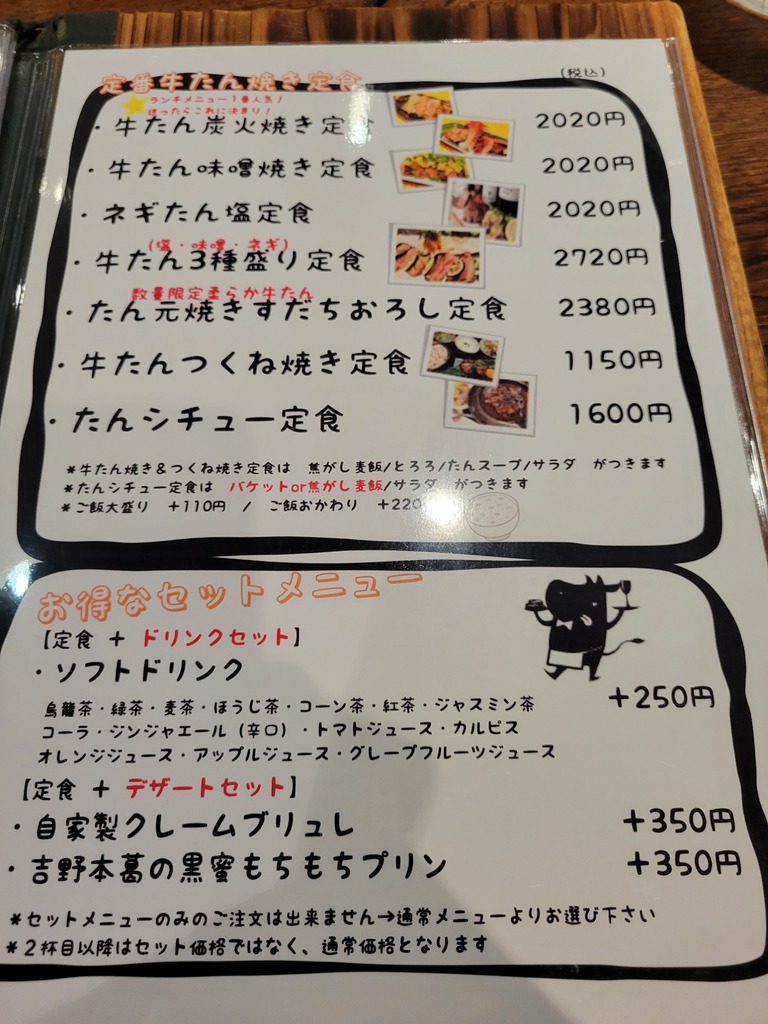 定番牛たん焼き定食
(税込)
ランチメニュー1番人気!
迷ったらこれに決まり!
・牛たん炭火焼き定食 2020円
・牛たん味噌焼き定食 2020円
・ネギたん塩定食 2020円
(塩・味噌・ネギ)
・牛たん3種盛り定食 2720円
数量限定柔らか牛たん
・たん元焼きすだちおろし定食 2380円
・牛たんつくね焼き定食 1150円
・たんシチュー定食 1600円
*牛たん焼き&つくね焼き定食は 焦がし麦飯/とろろ/たんスープ/サラダ がつきます
*たんシチュー定食は バケットor焦がし麦飯/サラダ がつきます
*ご飯大盛り +110円 / ご飯おかわり +220
お得なセットメニュー
【定食 + ドリンクセット】
・ソフトドリンク
+250円
烏龍茶・緑茶・麦茶・ほうじ茶・コーン茶・紅茶・ジャスミン茶
コーラ・ジンジャエール(辛口)・トマトジュース・カルピス
オレンジジュース・アップルジュース・グレープフルーツジュース
【定食 + デザートセット】
・自家製クレームブリュレ +350円
・吉野本葛の黒蜜もちもちプリン +350円
*セットメニューのみのご注文は出来ません→通常メニューよりお選び下さい
*2杯目以降はセット価格ではなく、通常価格となります